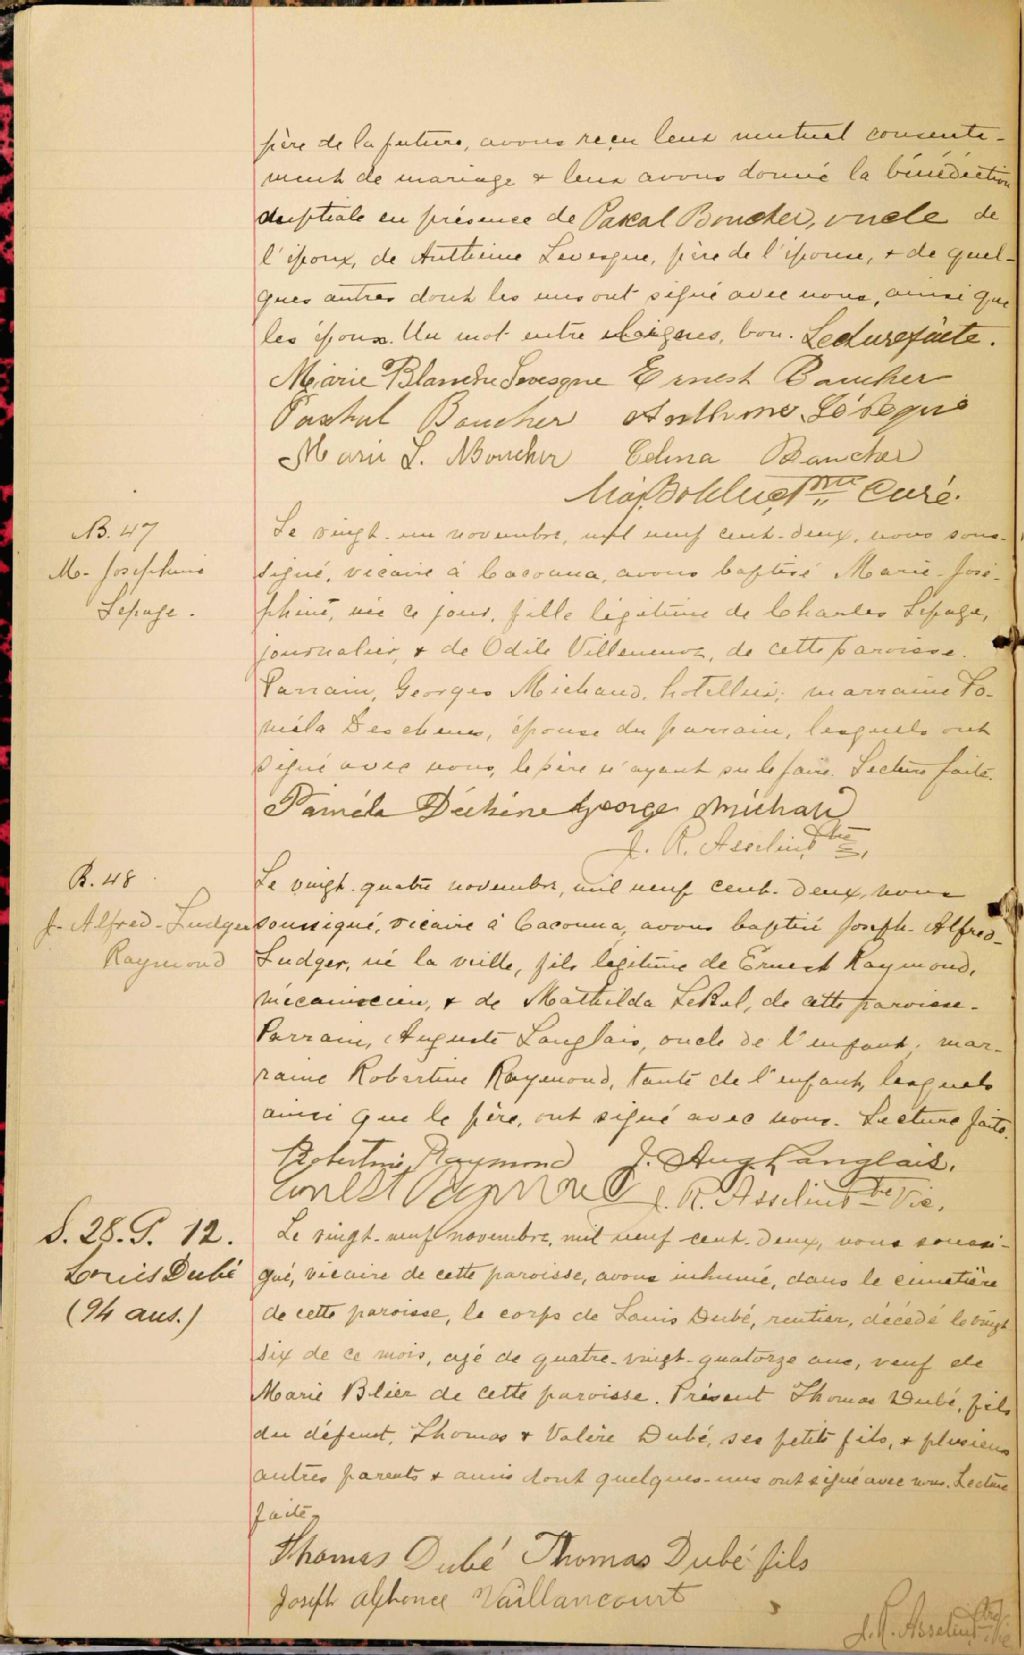 père de la future, avons reçu leur mutuel consente-
ment de mariage & leur avons donné la bénédiction
nuptiale en présence de Pascal Boucher, oncle de
l'époux, de Anthime Levesque, père de l'épouse, & de quel-
ques autres dont les uns ont signé avec nous, ainsi que
les époux. Un mot entre lignes, bon. Lecture faite.
Marie Blanche Levesque Ernest Boucher
Paschal Boucher Anthime Lévêque
Marie L. Boucher Edma Boucher
Ptre Curé.
B. 47
M- Josephine
Lepage.
Le vingt-un novembre, mil neuf cent-deux, nous sous-
signé, vicaire à Cacouna, avons baptisé Marie-José-
phine, née ce jour, fille légitime de Charles Lepage,
journalier, & de Odile Villeneuve, de cette paroisse.
Parrain, Georges Michaud, hotellier; marraine Pa-
méla Deschenes, épouse du parrain, lesquels ont
signé avec nous, le père n'ayant su le faire. Lecture faite.
Paméla Déchène George Michaud
J. R. Asselin, Ptre
B. 48
J- Alfred-Ludger
Raymond
Le vingt-quatre novembre, mil neuf cent-deux, nous
soussigné, vicaire à Cacouna, avons baptisé Joseph-Alfred-
Ludger, né la veille, fils légitime de Ernest Raymond,
mécanicien, & de Mathilda LeBel, de cette paroisse.
Parrain, Auguste Langlais, oncle de l'enfant; mar-
raine Robertine Raymond, tante de l'enfant, lesquels
ainsi que le père, ont signé avec nous. Lecture faite.
Robertine Raymond J. Aug. Langlais.
Ernest Raymond J. R. Asselin Ptre Vic.
S. 28. P. 12.
Louis Dubé
(94 ans.)
Le vingt-neuf novembre, mil neuf cent-deux, nous soussi-
gné, vicaire de cette paroisse, avons inhumé, dans le cimetière
de cette paroisse, le corps de Louis Dubé, rentier, décédé le vingt
six de ce mois, agé de quatre-vingt-quatorze ans, veuf de
Marie Blier de cette paroisse. Présent Thomas Dubé, fils
du défunt, Thomas & Valère Dubé, ses petits fils, & plusieurs
autres parents & amis dont quelques-uns ont signé avec nous. Lecture
faite.
Thomas Dubé Thomas Dubé fils
Joseph alphonce Vaillancourt
J. R. Asselin, Ptre Vic